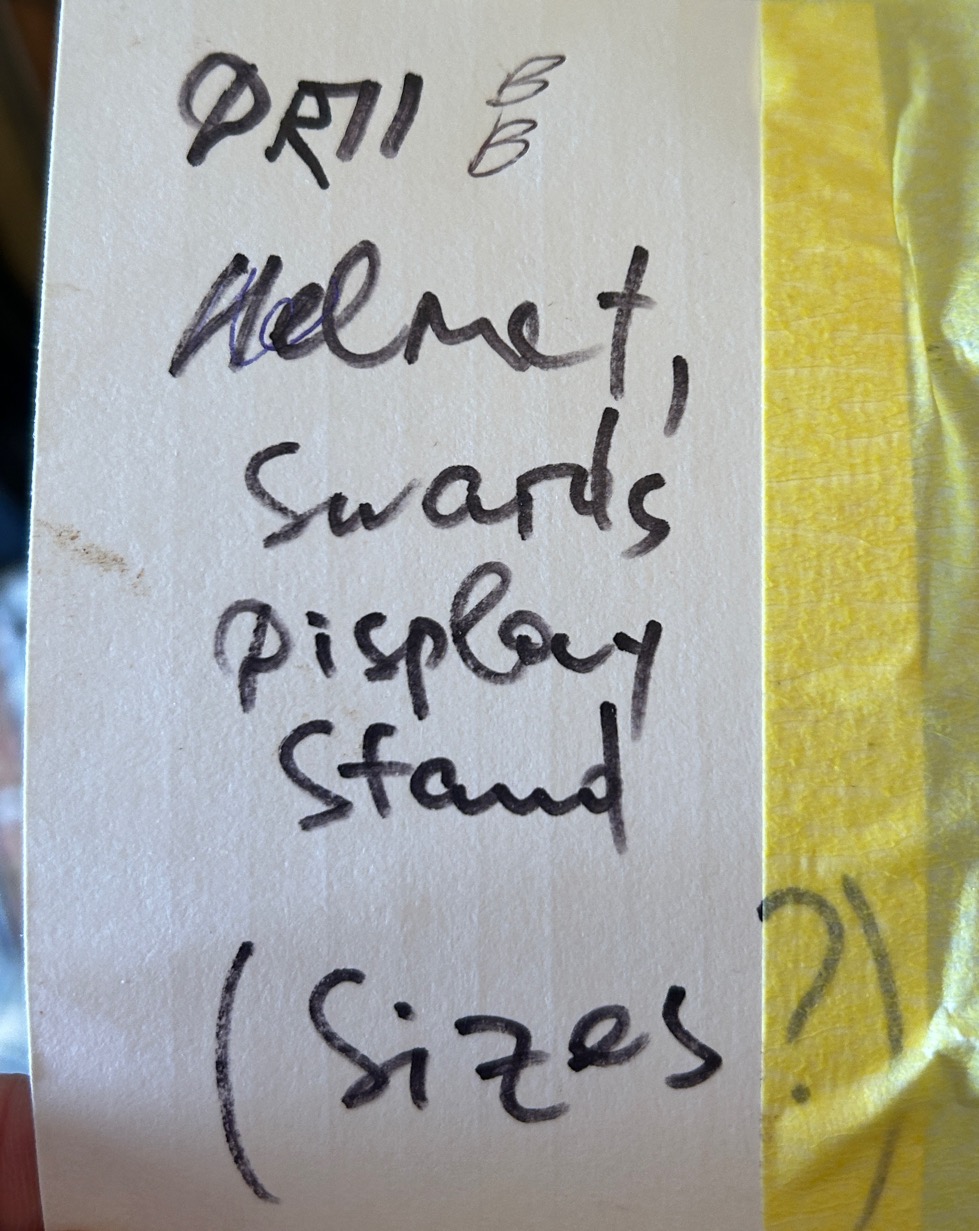 DRII B
B
Helmet,
Swards
Display
Stand
(Sizes ?)